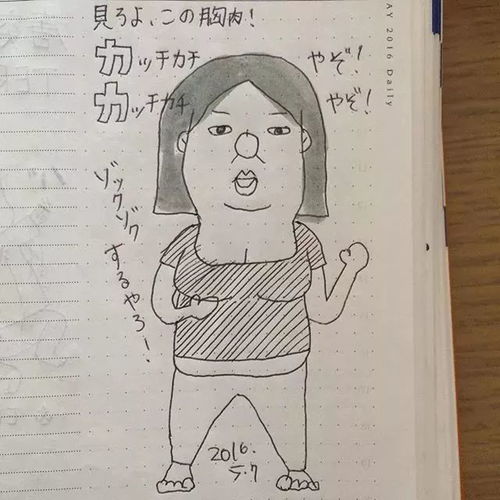 見ろよ、この胸肉!
カッチカチやぞ!
カッチカチやぞ!
ゾックゾクするやろ!
2016.
5.7
AY 2016 Daily